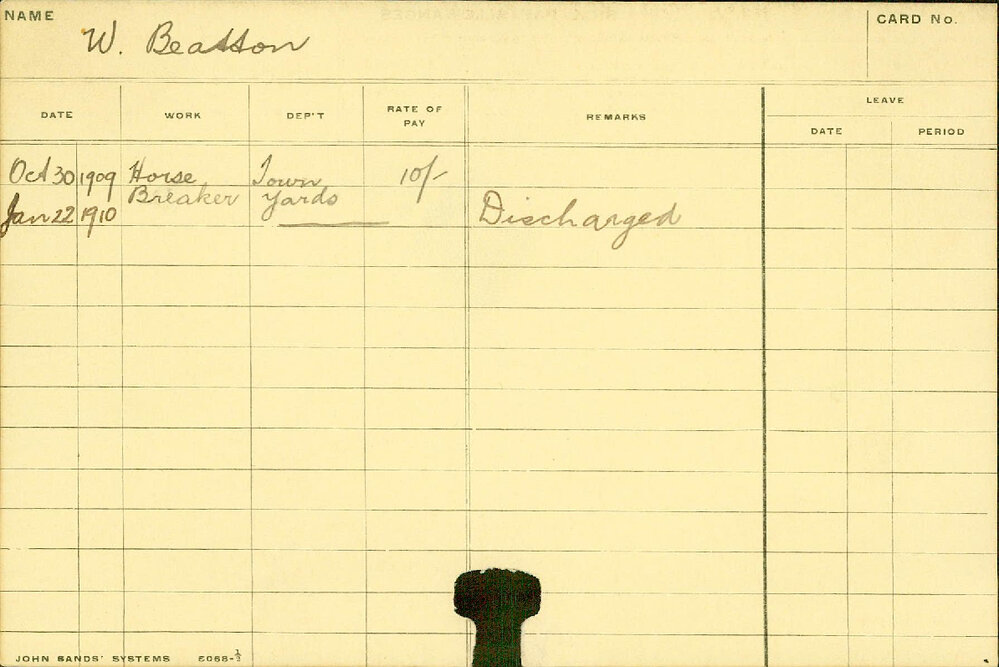 NAME
W. Beatton
CARD No.
DATE
WORK
DEP'T
RATE OF
PAY
REMARKS
LEAVE
DATE
PERIOD
Oct 30 1909 Horse Town 10/-
Breaker Yards
Jan 22 1910 Discharged
JOHN SANDS' SYSTEMS